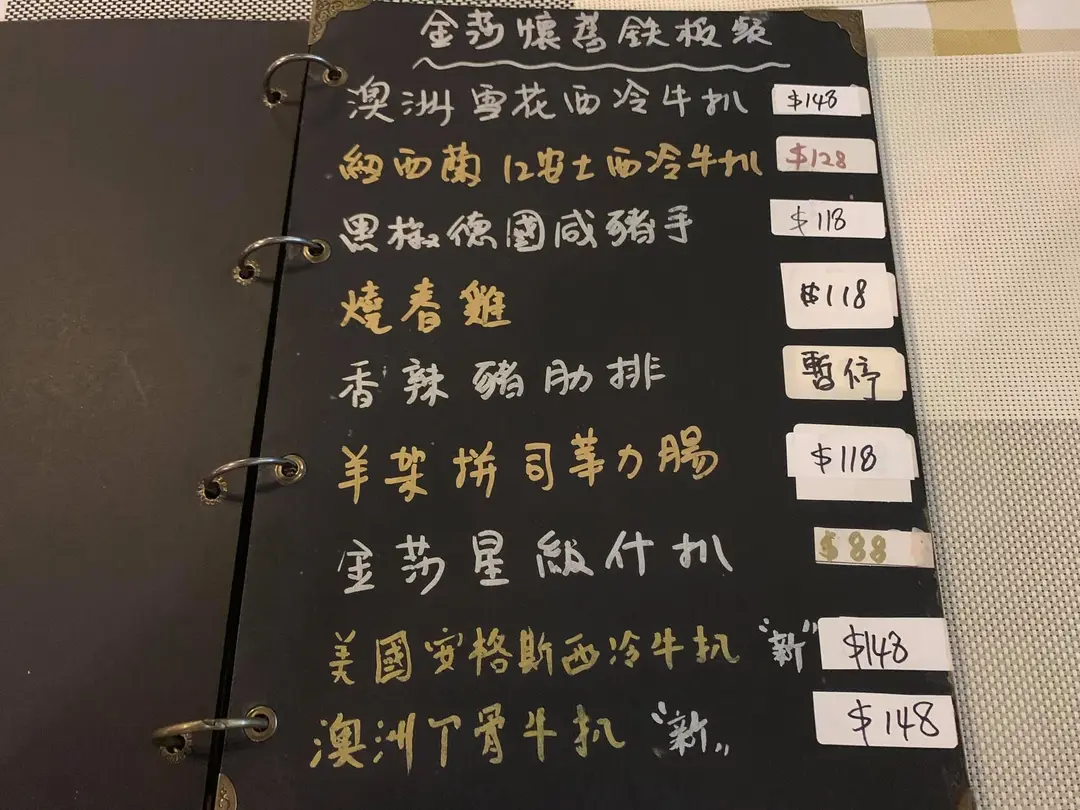 金莎懷舊鉄板類
澳洲雪花西冷牛扒 $148
紐西蘭12安士西冷牛扒 $128
黑椒德國咸豬手 $118
燒春雞 $118
香辣豬肋排 暫停
羊架拼司華力腸 $118
金莎星級什扒 $88
美國安格斯西冷牛扒 "新" $148
澳洲丁骨牛扒 "新" $148